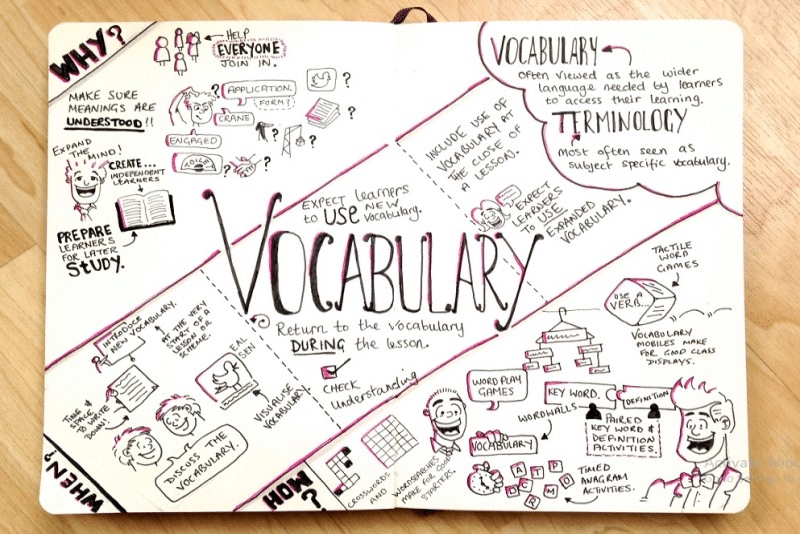 WHY?
HELP
EVERYONE
JOIN IN.
MAKE SURE
MEANINGS ARE
UNDERSTOOD!!
?
?
?
?
?
?
APPLICATION.
FORM?
CRANE
ENGAGED
TOILET
EXPAND
THE MIND!
CREATE...
INDEPENDENT
LEARNERS
PREPARE
LEARNERS
FOR LATER
STUDY.
VOCABULARY
Often viewed as the wider
language needed by learners
to access their learning.
TERMINOLOGY
Most often seen as
subject specific vocabulary.
INCLUDE USE OF
VOCABULARY AT
THE CLOSE OF
A LESSON.
EXPECT
LEARNERS
TO USE
EXPANDED
VOCABULARY.
EXPECT learners
to USE new
vocabulary.
VOCABULARY
Return to the vocabulary
DURING the lesson.
CHECK
Understanding
INTRODUCE
NEW VOCABULARY.
AT THE VERY
START OF A
LESSON OR
SCHEME.
TIME &
SPACE
TO WRITE
DOWN!
EAL
SEN
VISUALISE
VOCABULARY
DISCUSS THE
VOCABULARY.
WHEN?
HOW?
CROSSWORDS
AND
WORDSEARCHES
MAKE FOR GOOD
STARTERS.
WORD PLAY
GAMES
WORDWALLS
VOCABULARY
TACTILE
WORD
GAMES
USE A
VERB...
VOCABULARY
MOBILES MAKE
FOR GOOD CLASS
DISPLAYS.
KEY WORD.
DEFINITION
PAIRED
KEY WORD &
DEFINITION
ACTIVITIES.
A T P
D C R M O
TIMED
ANAGRAM
ACTIVITIES.